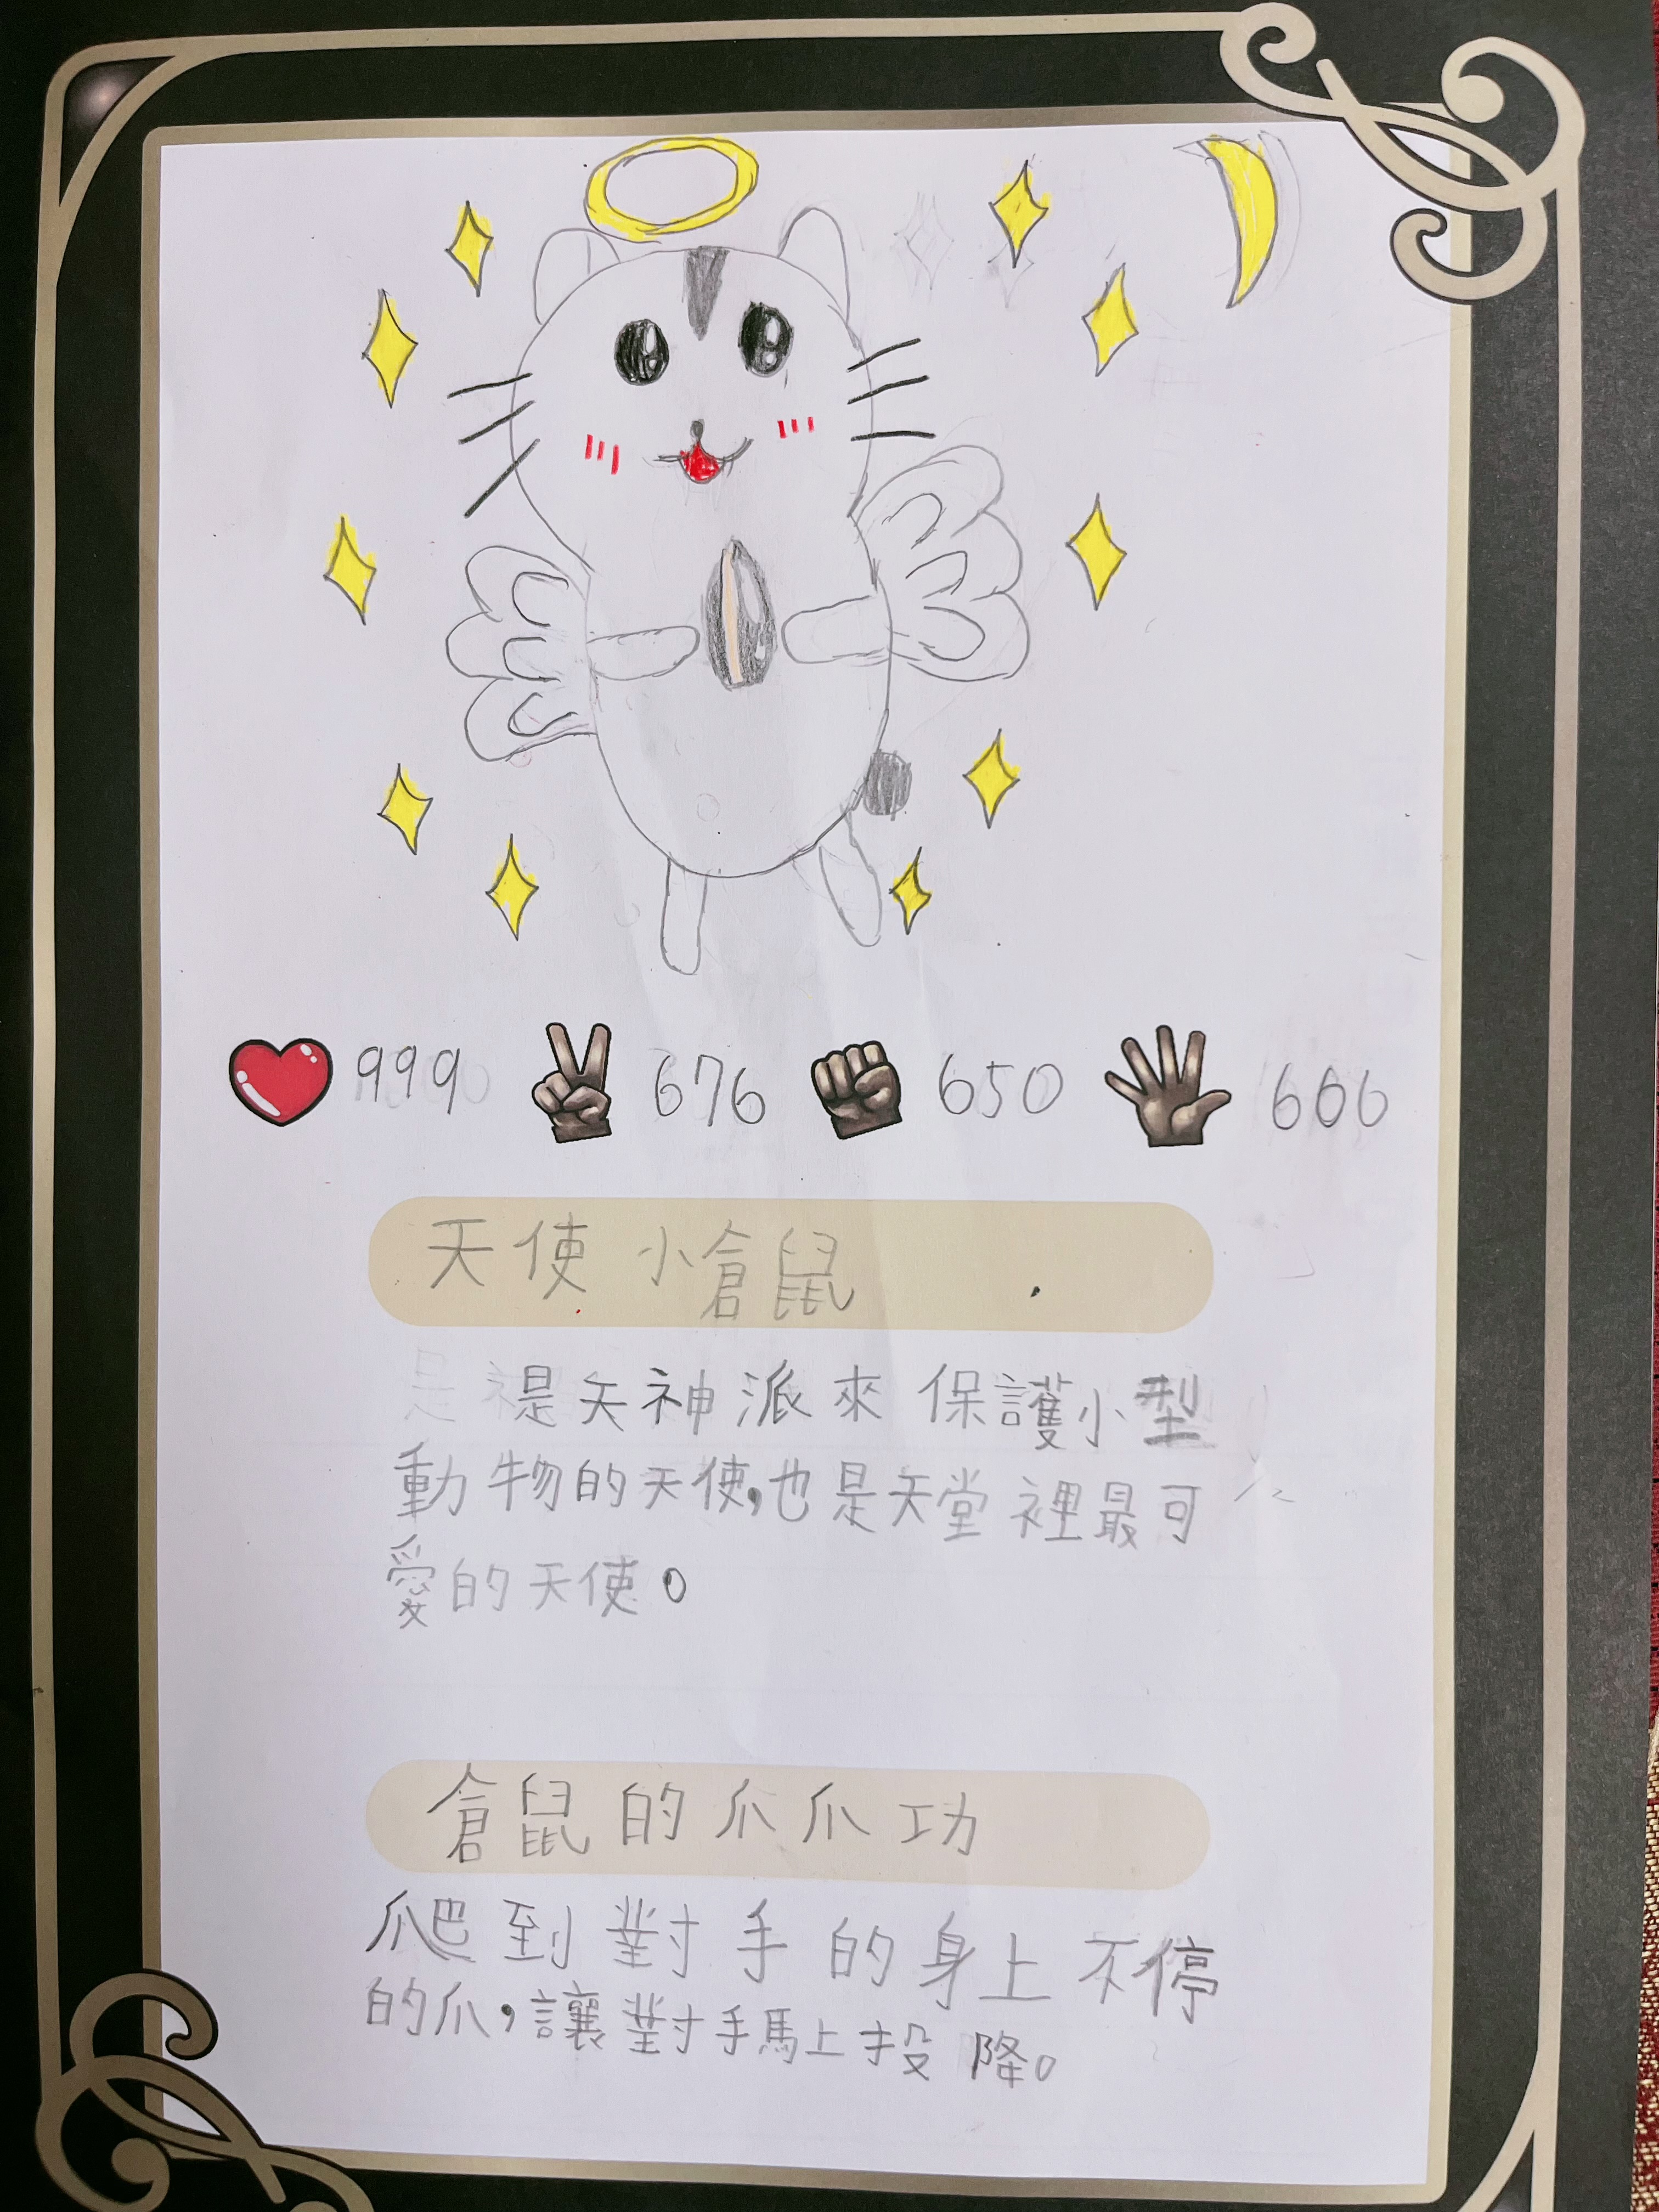 999 676 650 606
天使小倉鼠
是天神派來保護小型
動物的天使,也是天堂裡最可
愛的天使。
倉鼠的爪爪功
爬到對手的身上不停
的爪,讓對手馬上投降。